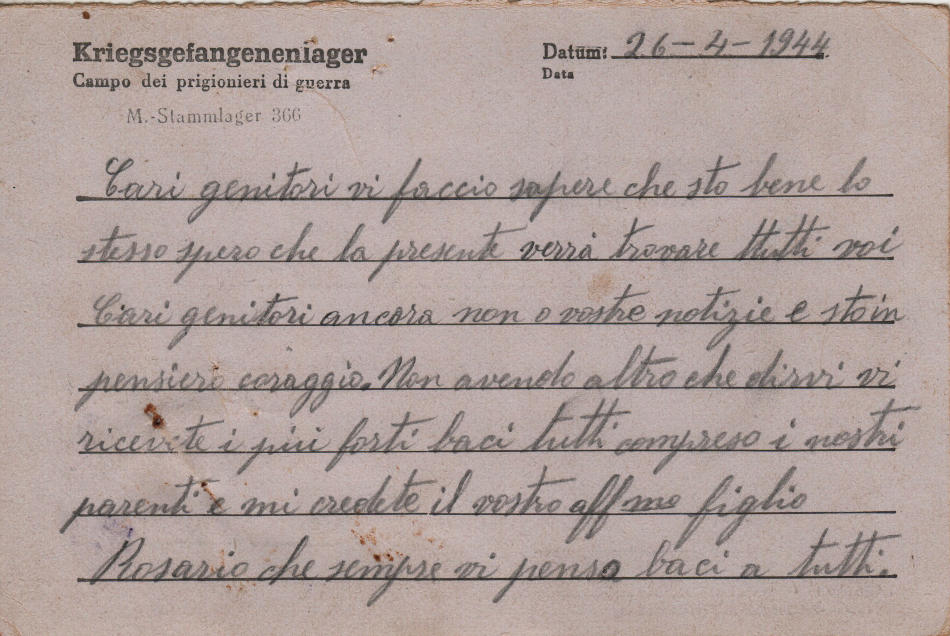 Kriegsgefangenenlager
Datum: 26-4-1944
Campo dei prigionieri di guerra
Data
M.-Stammlager 366
Cari genitori vi faccio sapere che sto bene lo
stesso spero che la presente verrà trovare ttutti voi
Cari genitori ancora non o vostre notizie e stoin
pensiero coraggio. Non avendo altro che dirvi vi
ricevete i più forti baci tutti compreso i nostri
parenti e mi credete il vostro affmo figlio
Rosario che sempre vi pensa baci a tutti.